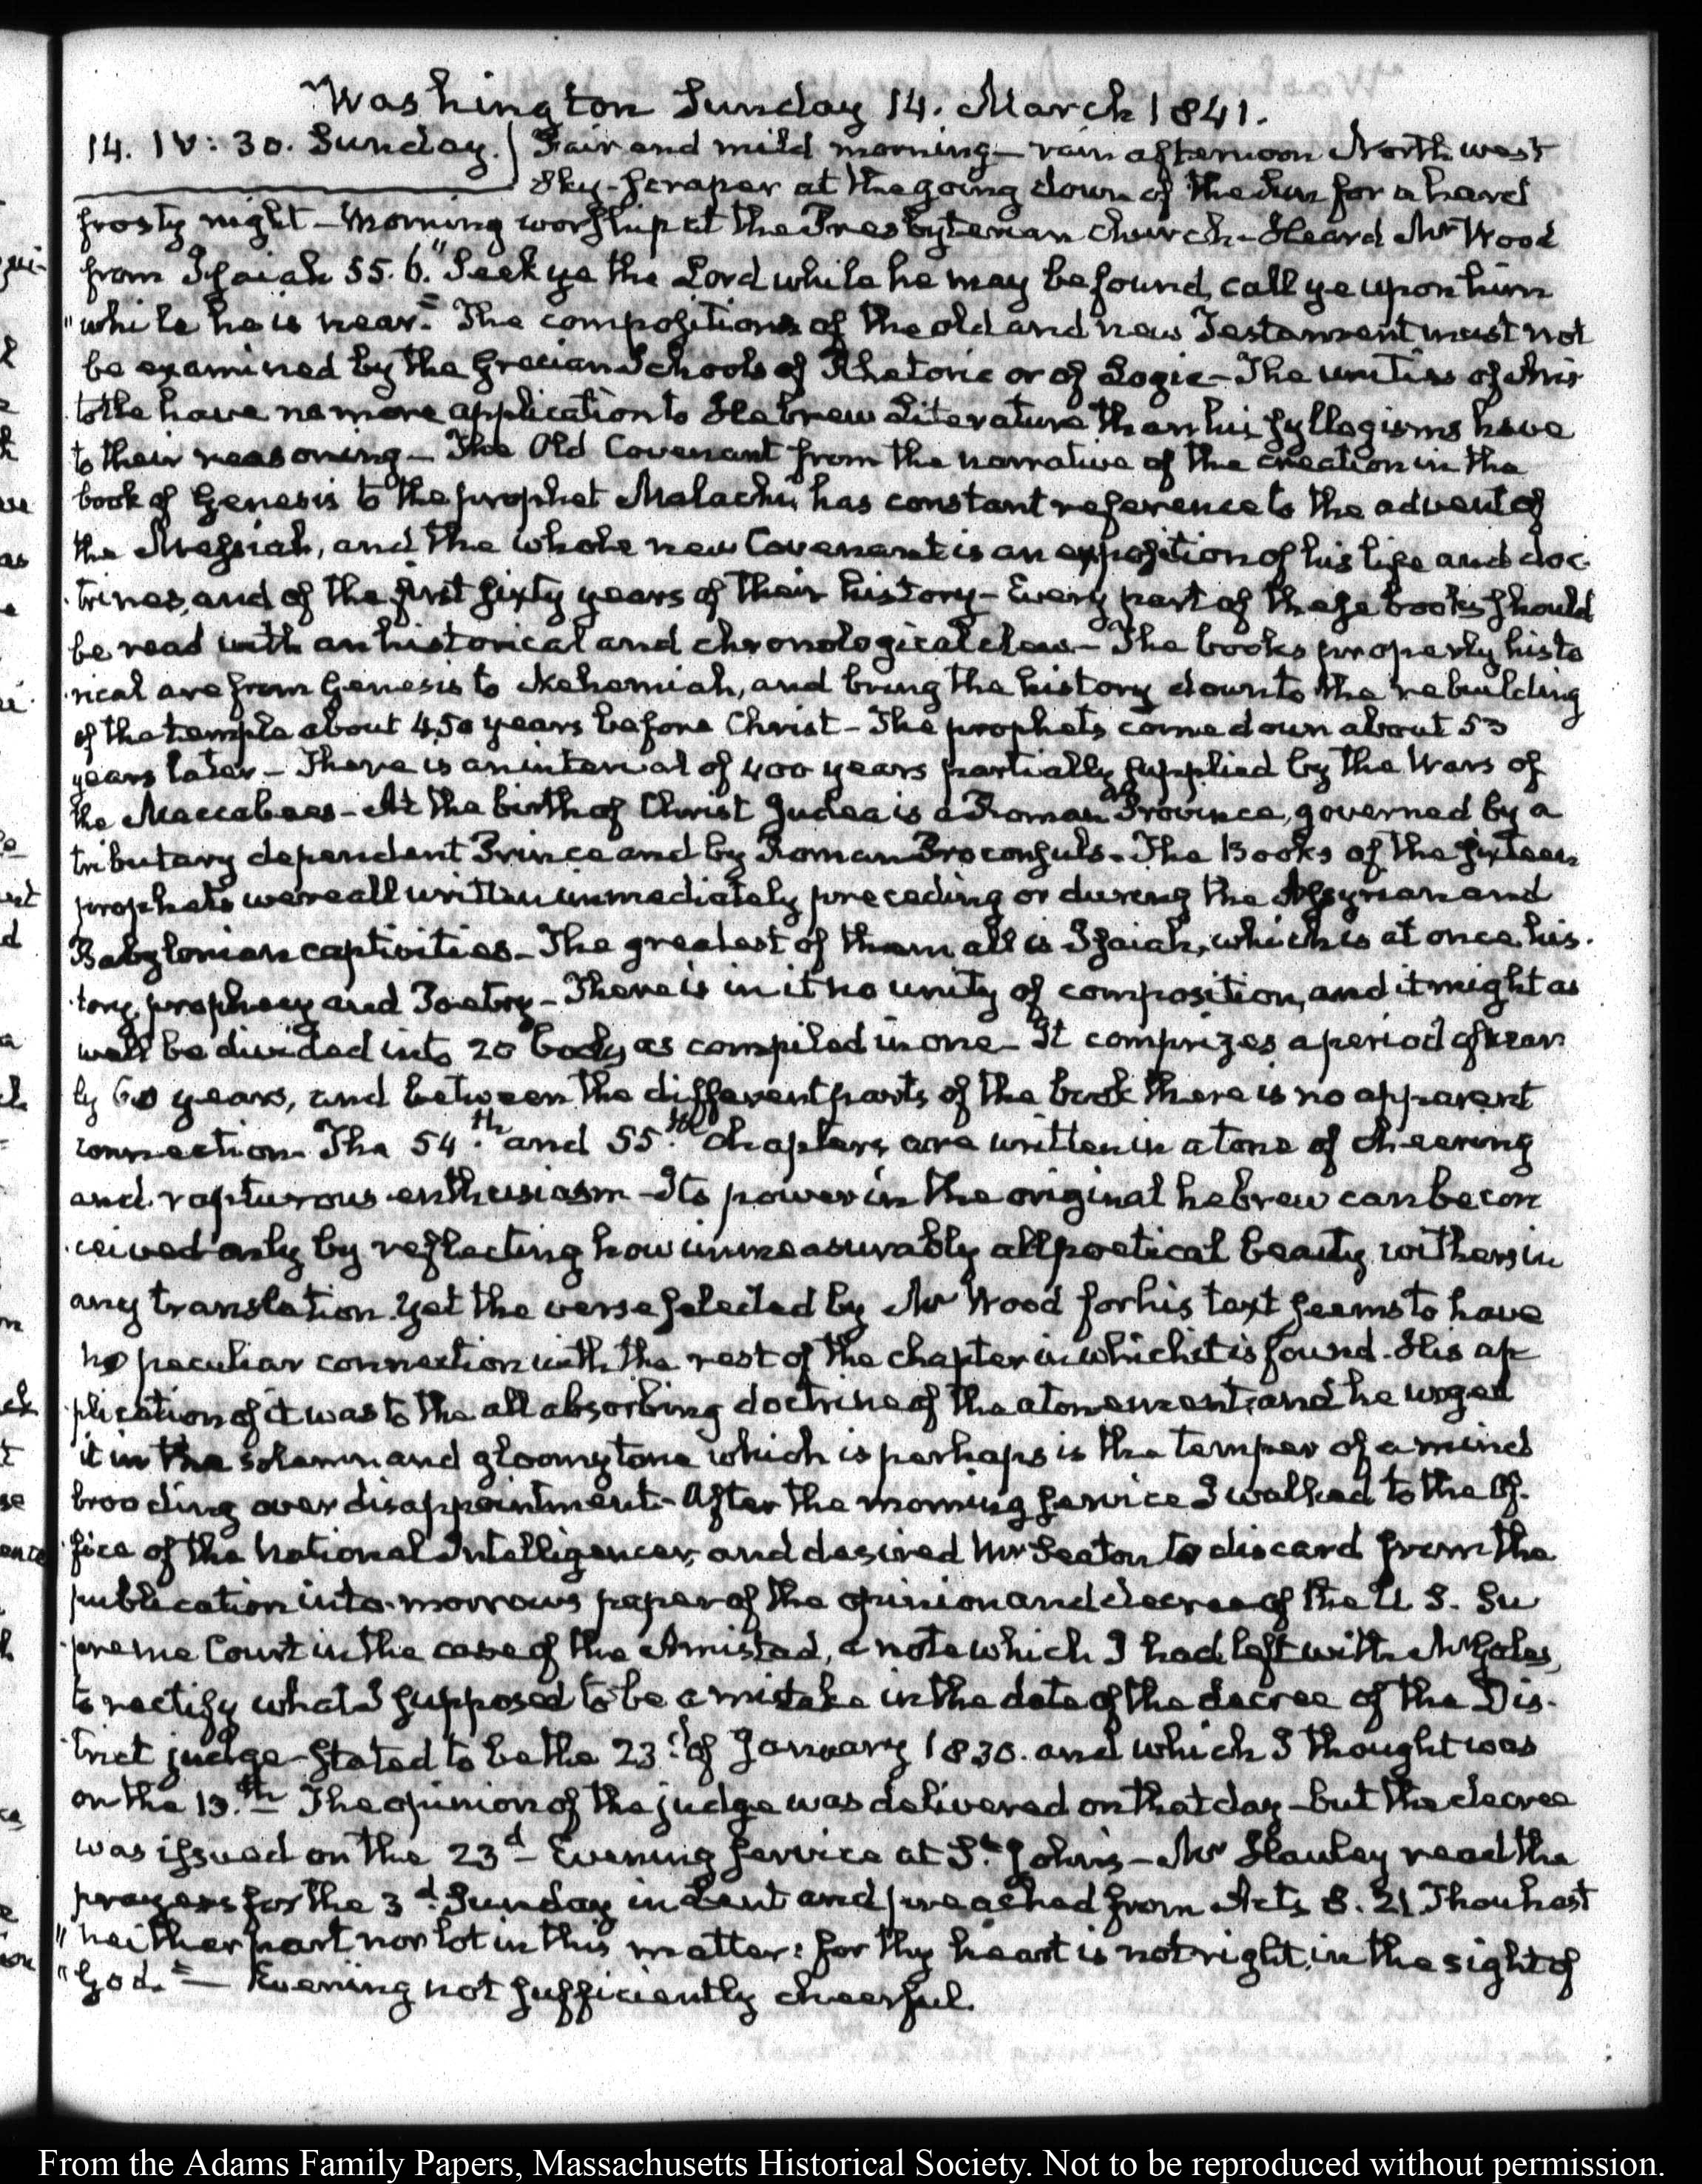 Washington Sunday 14. March 1841.
14. IV: 30. Sunday. Fair and mild morning – rain afternoon North west
Sky-scraper at the going down of the Sun for a hard
frosty night – Morning worship at the Presbyterian church – Heard Mr Wood
from Isaiah 55. 6. "Seek ye the Lord while he may be found, call ye upon him
"while he is near." The compositions of the old and new Testament must not
be examined by the Grecian Schools of Rhetoric or of Logic – The unities of Aris
totle have no more application to Hebrew Literature than his syllogisms have
to their reasoning – The Old Covenant from the narrative of the creation in the
book of Genesis to the prophet Malachi, has constant reference to the advent of
the Messiah, and the whole new Covenant is an exposition of his life and doc-
trines, and of the first sixty years of their history – Every part of these books should
be read with an historical and chronological clew – The books properly histo
rical are from Genesis to Nehemiah, and bring the history down to the rebuilding
of the temple about 450 years before Christ – The prophets come down about 53
years later – There is an interval of 400 years partially supplied by the Wars of
the Maccabees – At the birth of Christ Judea is a Roman Province, governed by a
tributary dependent Prince and by Roman Proconsuls – The Books of the sixteen
prophets were all written immediately preceding or during the Assyrian and
Babylonian captivities – The greatest of them all is Isaiah, which is at once his-
tory, prophecy and Poetry – There is in it no unity of composition, and it might as
well be divided into 20 body as compiled in one – It comprizes a period of near
ly 60 years, and between the different parts of the book there is no apparent
connection. The 54.th and 55.th chapters are written in a tone of cheering
and rapturous enthusiasm – Its power in the original hebrew can be con
ceived only by reflecting how immeasurably all poetical beauty withers in
any translation. Yet the verse selected by Mr Wood for his text seems to have
no peculiar connection with the rest of the chapter in which it is found. His ap
plication of it was to the all absorbing doctrine of the atonement; and he urged
it in the solemn and gloomy tone which is perhaps is the temper of a mind
brooding over disappointment – After the morning service I walked to the Of-
fice of the National Intelligencer, and desired Mr Seaton to discard from the
publication in to-morrows paper of the opinion and decree of the U. S. Su
preme Court in the case of the Amistad, a note which I had left with Mr Gales,
to rectify what I supposed to be a mistake in the date of the decree of the Dis-
trict judge – stated to be the 23.d of January 1830. and which I thought was
on the 13.th – The opinion of the judge was delivered on that day – but the decree
was issued on the 23d – Evening service at St. John's – Mr Hawley read the
prayers for the 3d. Sunday in Lent and preached from Acts 8. 21 Thou hast
"neither part nor lot in this matter: for thy heart is not right, in the sight of
"God." – Evening not sufficiently cheerful.
From the Adams Family Papers, Massachusetts Historical Society. Not to be reproduced without permission.